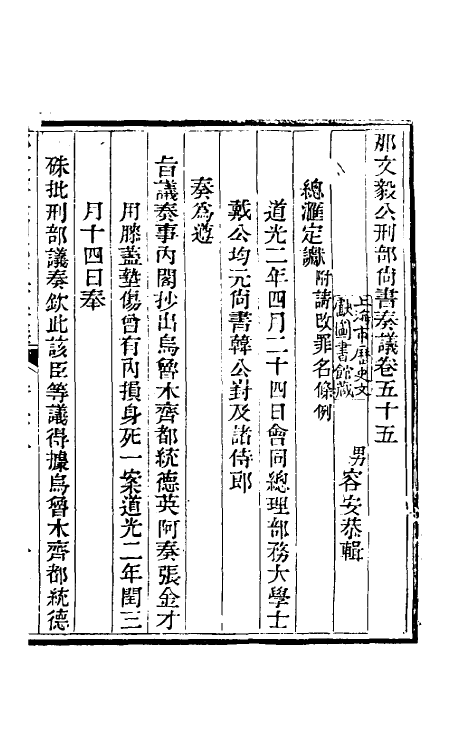 那文毅公刑部尙書奏議卷五十五
上海市歷史文
獻圖書館藏
男容安恭輯
總滙定讞附請改罪名條例
道光二年四月二十四日會同總理部務大學士
戴公均元尙書韓公對及諸侍郎
奏爲遵
旨議奏事內閣抄出烏魯木齊都統德英阿奏張金才
用膝蓋墊傷曾有內損身死一案道光二年閏三
月十四日奉
硃批刑部議奏欽此該臣等議得據烏魯木齊都統德